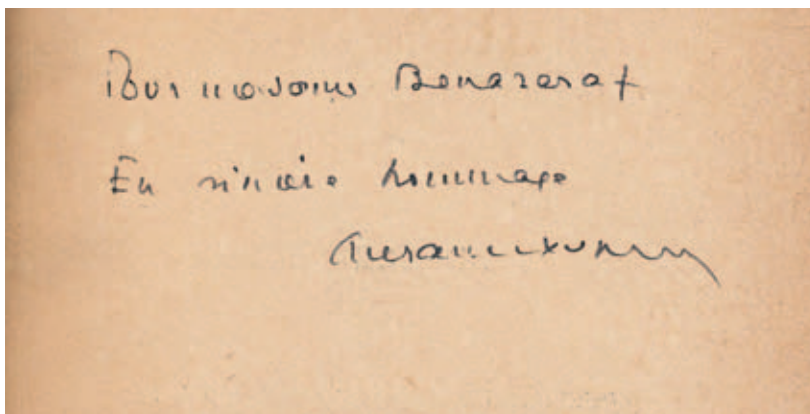 Pour madame Benazeraf
En sincère hommage